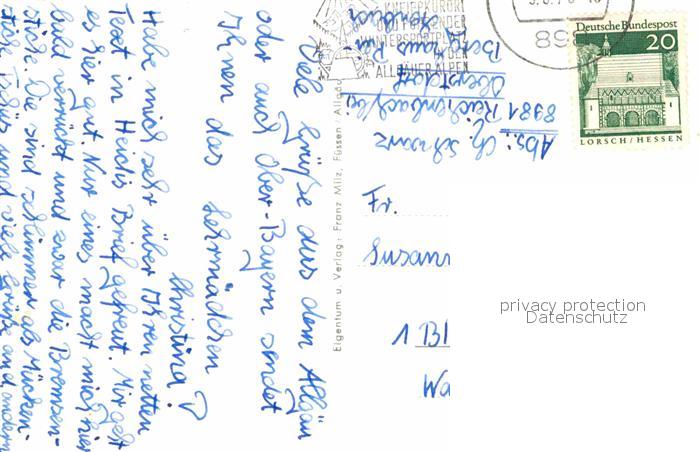 KNEIPPKURORT
WINTERSPORTPLATZ
ALLGÄUER ALPEN
89
Deutsche Bundespost
20
LORSCH/HESSEN
Abs: Ch. Schwarz
8981 Reichenbach/bei
Oberstdorf
Berghaus
Fr.
1 Bl
Wa
privacy protection
Datenschutz
Eigentum u. Verlag: Franz Milz, Füssen/Allgäu
Viele Grüße aus dem Allgäu
oder auch Ober-Bayern sendet
Ihnen das Lehrmädchen
Christina!
Habe mich sehr über Ihren netten
Text in Heidis Brief gefreut. Mir geht
es hier gut. Nur eines macht mich hier
bald verrückt und zwar die Bremsen-
stiche. Die sind schlimmer als Mücken-
stiche. Tschüs und viele Grüße and andern